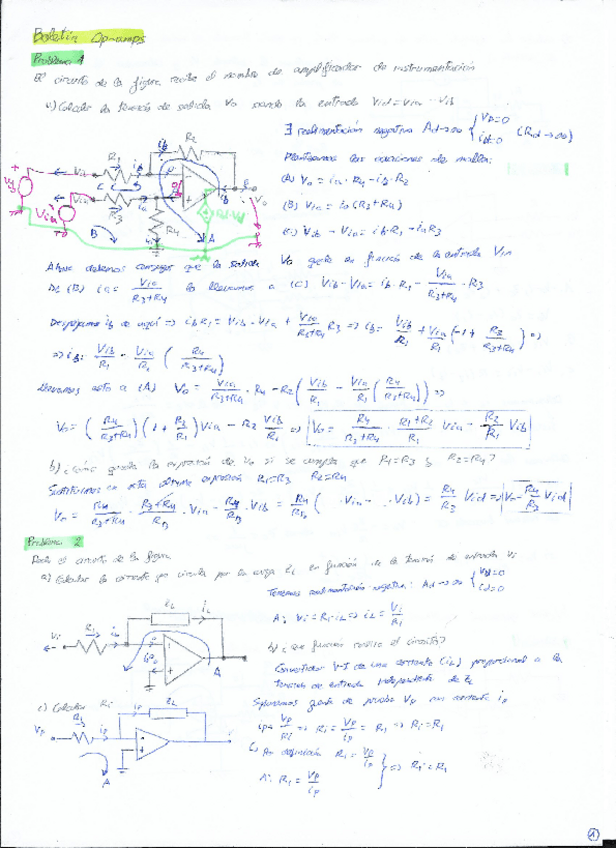 Boletín Op-amps
Problema 1
El circuito de la figura recibe el nombre de amplificador de instrumentación
a) Calcular la tensión de salida Vo siendo la entrada Vid = Via - Vib
∃ realimentación negativa Ad→∞ { Vd=0 id=0 (Rid→∞)
Planteamos las ecuaciones de malla:
(A) Vo = ia·R4 - ib·R2
(B) Via = ia(R3+R4)
(C) Vib - Via = ib·R1 - iaR3
R1 ib R2
R3 ia R4
Vo
A
B
C
Ahora debemos conseguir que la salida Vo quede en función de la entrada Vin
De (B) ia = Via/(R3+R4) lo llevamos a (C) Vib - Via = ib·R1 - Via/(R3+R4) · R3
Despejamos ib de aquí ⇒ ibR1 = Vib - Via + Via/(R3+R4) R3 ⇒ ib = Vib/R1 + Via/R1 (-1 + R3/(R3+R4)) ⇒
⇒ ib = Vib/R1 - Via/R1 (R4/(R3+R4))
Llevamos esto a (A) Vo = Via/(R3+R4) · R4 - R2 (Vib/R1 - Via/R1 (R4/(R3+R4))) ⇒
Vo = (R4/(R3+R4)) (1 + R2/R1) Via - R2 Vib/R1 ⇒ Vo = R4/(R3+R4) · (R1+R2)/R1 Via - R2/R1 Vib
b) ¿Cómo queda la expresión de Vo si se cumple que R1=R3 y R2=R4?
Sustituimos en esta última expresión R1=R3 R2=R4
Vo = R4/(R3+R4) · (R3+R4)/R3 · Via - R4/R3 · Vib = R4/R3 (Via - Vib) = R4/R3 Vid ⇒ Vo = R4/R3 Vid
Problema 2
Dado el circuito de la figura
a) Calcular la corriente que circula por la carga ZL en función de la tensión de entrada Vi
Tenemos realimentación negativa: Ad→∞ { Vd=0 id=0
A: Vi = R1·iL ⇒ iL = Vi/R1
Vi R1 iL ZL iL
A
b) ¿Qué función realiza el circuito?
Convertidor V-I da una corriente (iL) proporcional a la
tensión de entrada independiente de ZL
c) Calcular Ri
Suponemos fuente de prueba Vp con corriente ip
ip = Vp/Ri ⇒ Ri = Vp/ip = R1 ⇒ Ri = R1
Por definición Ri = Vp/ip
A: R1 = Vp/ip
⇒ Ri = R1
Vp R1 ip ip ZL
A
1